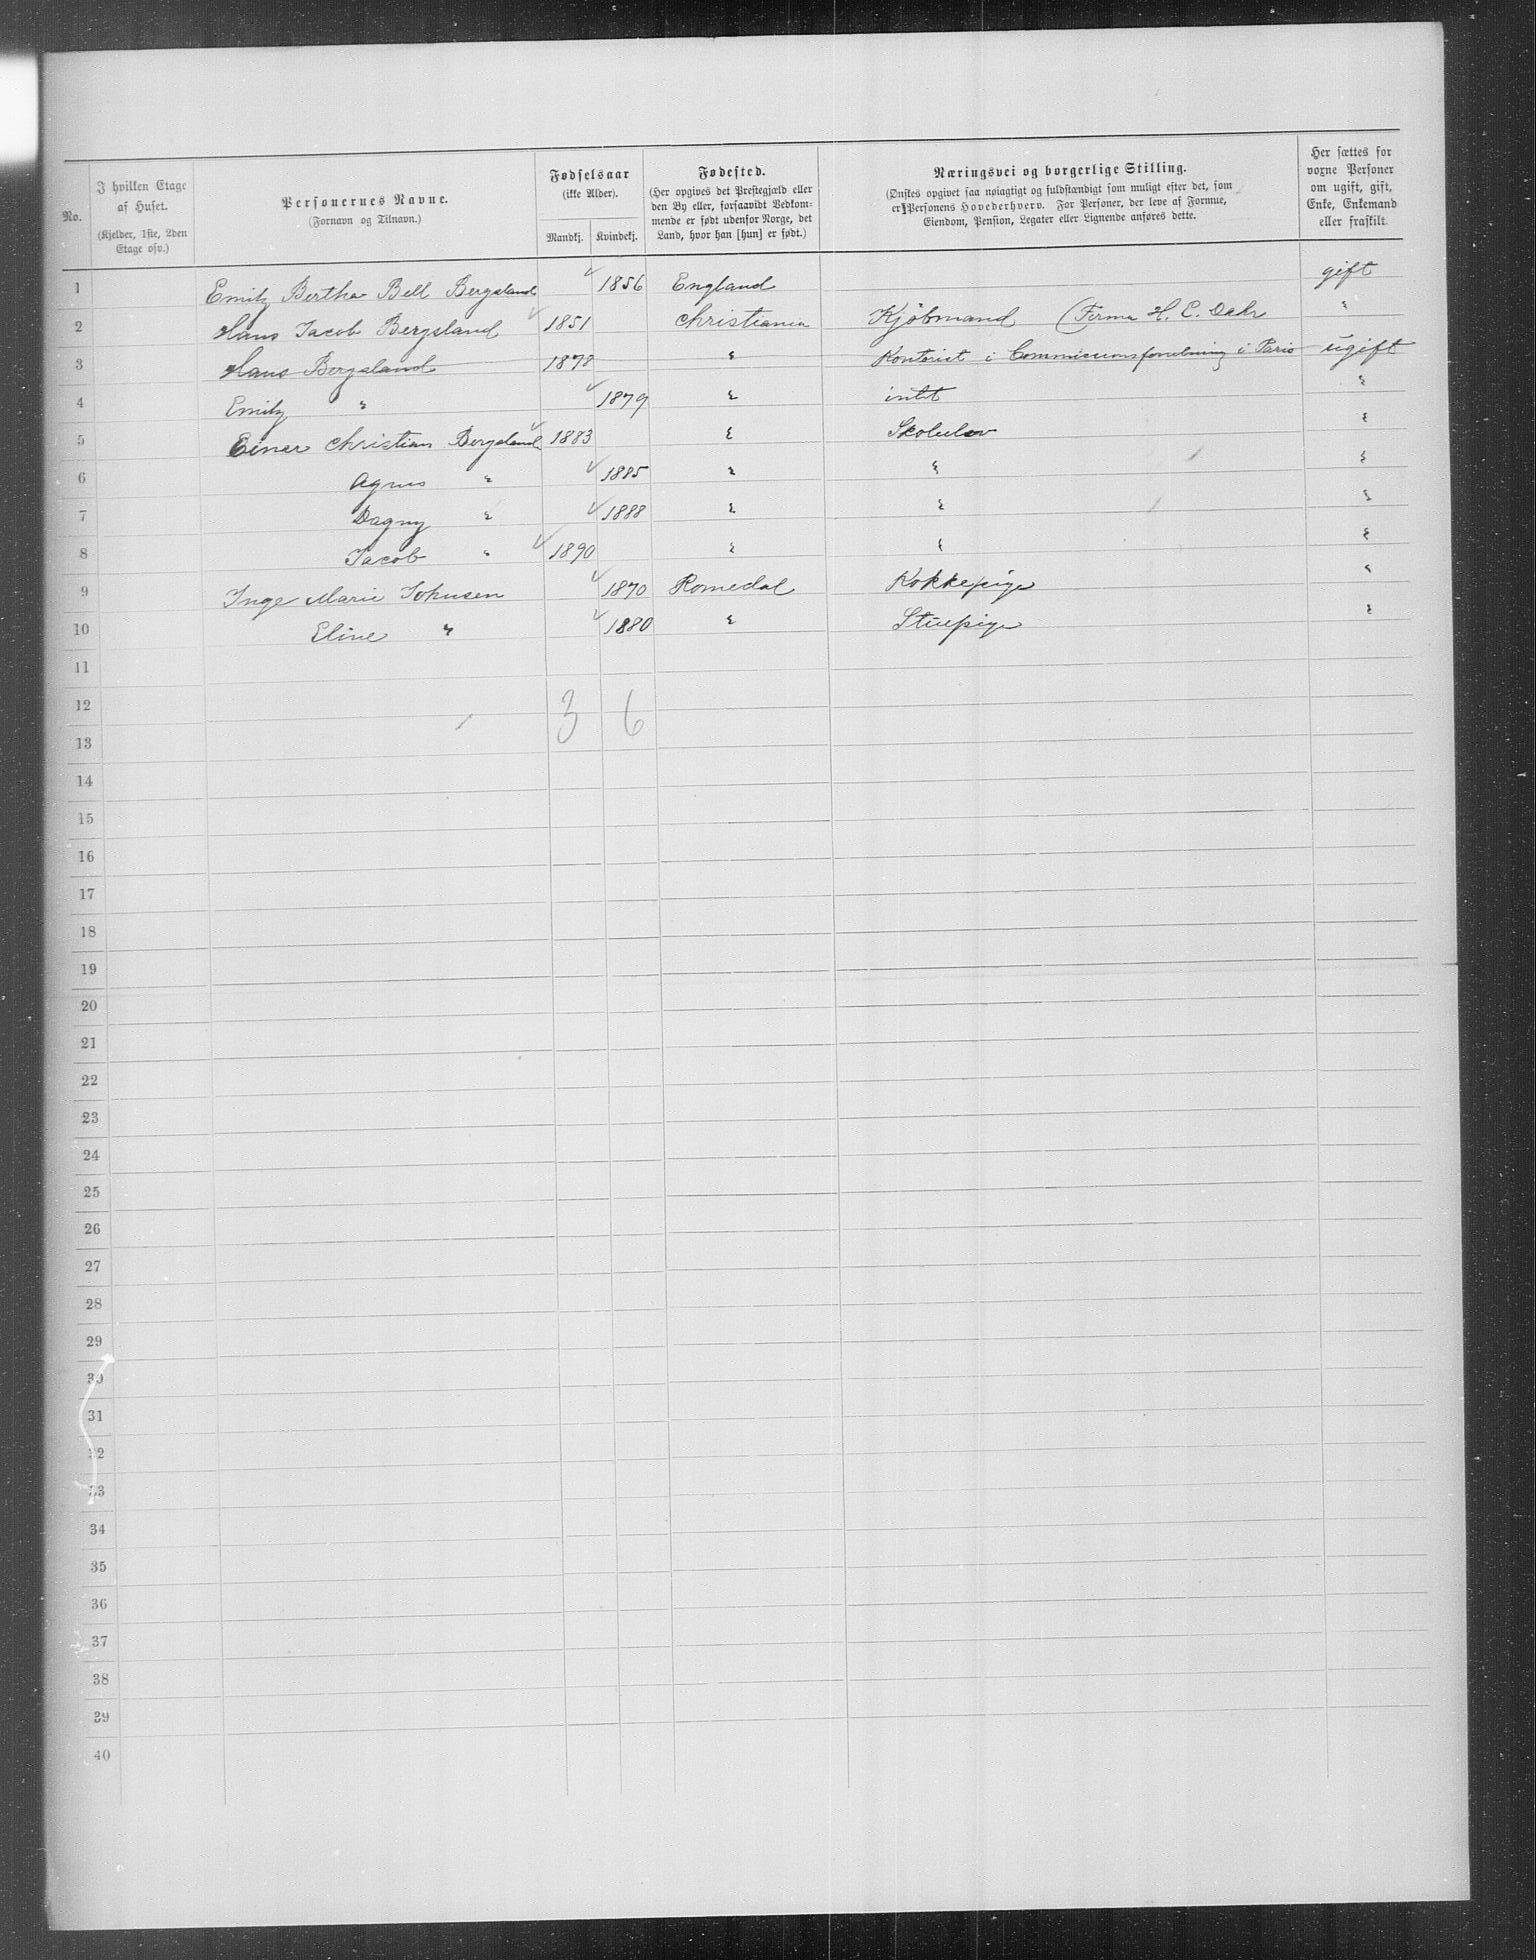 No. I hvilken Etage af Huset. (Kjelder, 1ste, 2den Etage osv.) Personernes Navne. (Fornavn og Tilnavn.) Fødselsaar (ikke Alder). Mandkj. Kvindekj. Fødested. (Her opgives det Prestegjæld eller den By eller, forsaavidt Vedkommende er født udenfor Norge, det Land, hvor han [hun] er født.) Næringsvei og borgerlige Stilling. (Ønskes opgivet saa nøiagtigt og fuldstændigt som muligt efter det, som er Personens Hovederhverv. For Personer, der leve af Formue, Eiendom, Pension, Legater eller Lignende anføres dette. Her sættes for voxne Personer om ugift, gift, Enke, Enkemand eller fraskilt.
1 Emily Bertha Bell Bergsland 1856 England gift
2 Hans Jacob Bergsland 1851 Christiania Kjøbmand (Firma H. C. Dehr "
3 Hans Bergsland 1878 " Kontorist i Commissionsforretning i Paris ugift
4 Emily " 1879 " intet "
5 Einar Christian Bergsland 1883 " Skoleelev "
6 Agnes " 1885 " " "
7 Dagny " 1888 " " "
8 Jacob " 1890 " " "
9 Inge Marie Johnsen 1870 Romedal Kokkepige "
10 Eline " 1880 " Stuepige "
11
12 3 6
13
14
15
16
17
18
19
20
21
22
23
24
25
26
27
28
29
30
31
32
33
34
35
36
37
38
39
40